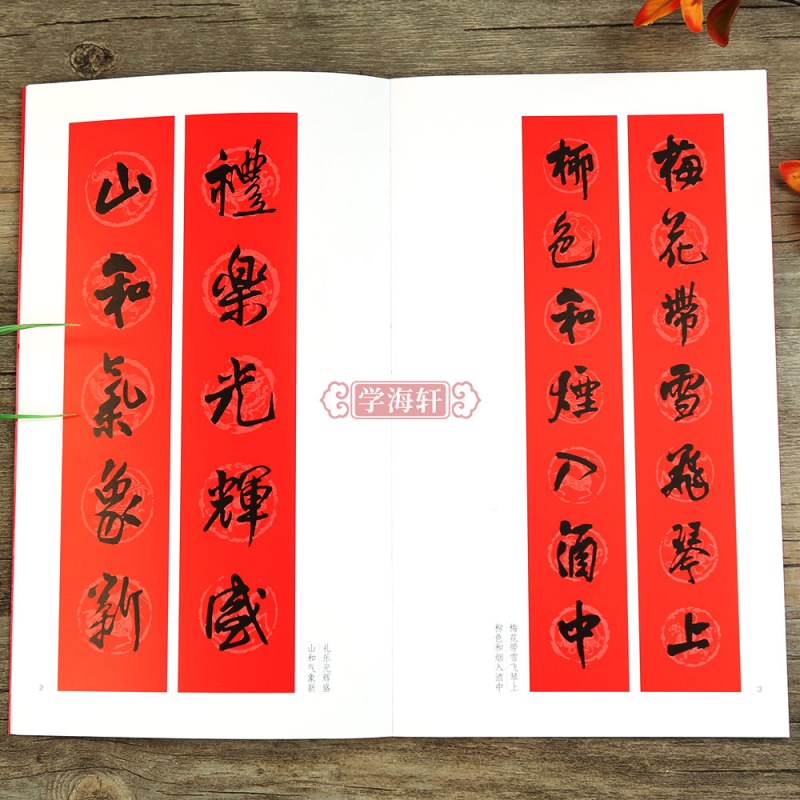 禮樂光輝盛
山和氣象新
礼乐光辉盛
山和气象新
2
学海轩
梅花帶雪飛琴上
柳色和煙入酒中
梅花带雪飞琴上
柳色和烟入酒中
3